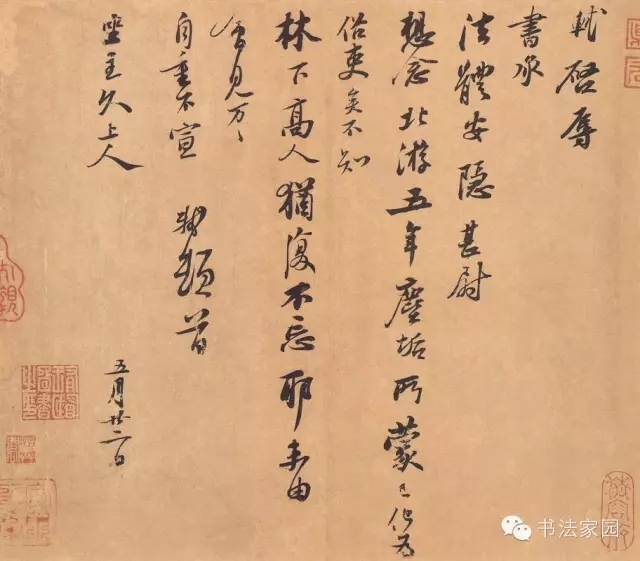 軾啓辱
書承
法體安隱甚慰
想念北游五年塵垢所蒙已化爲
俗吏矣不知
林下高人猶復不忘耶未由
會見万万
自重不宣 軾頓首
坐主久上人
五月廿二日
书法家园